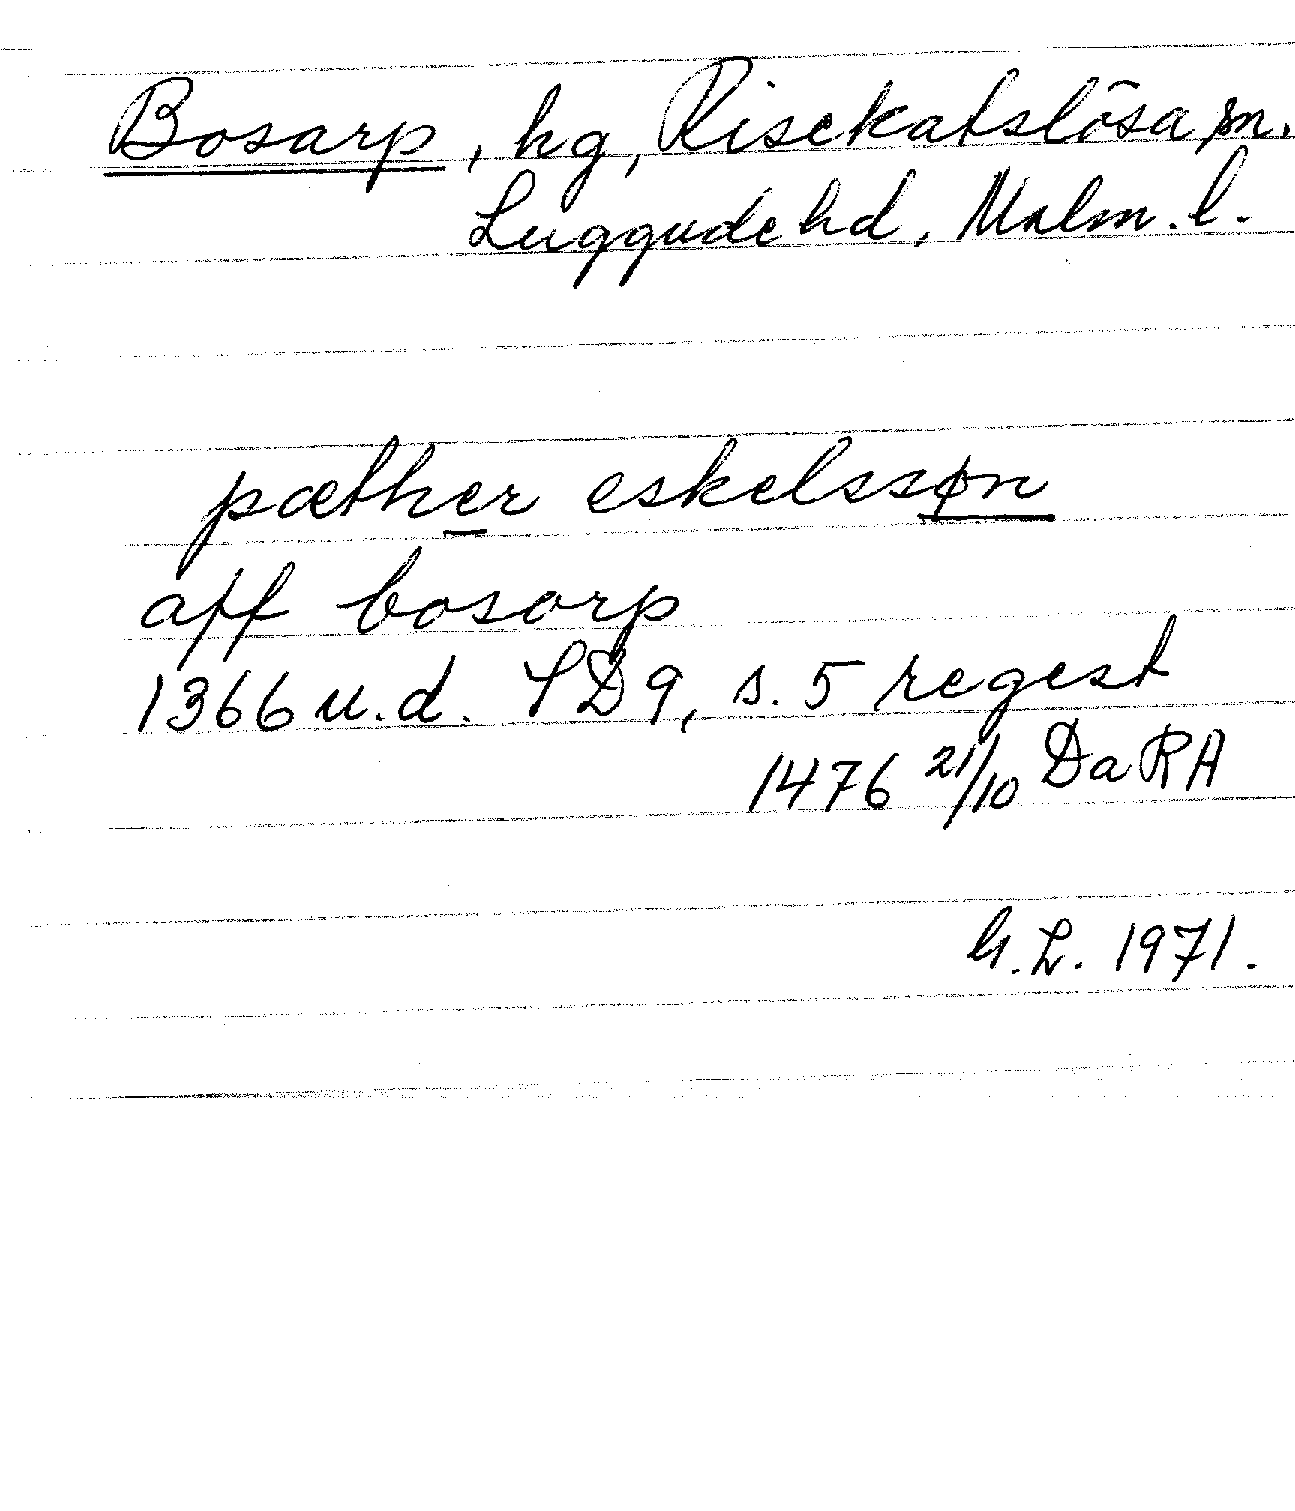 Bosarp, hg, Risekatslösa sn.
Luggude hd, Malm. l.
pæther eskelssøn
aff bosorp
1366 u.d. SD 9, s. 5 regest
1476 21/10 Da RA
G.L. 1971.